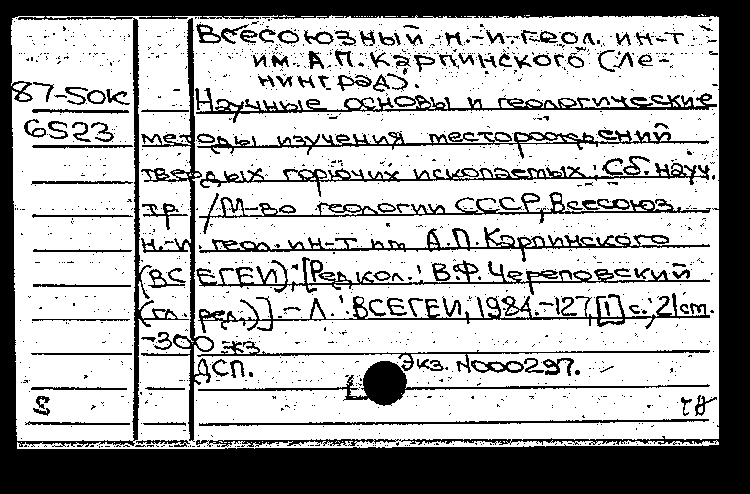 Всесоюзный н.-и. геол. ин-т
им. А.П. Карпинского (Ле-
нинград).
87-50к Научные основы и геологические
6523 методы изучения месторождений
твердых горючих ископаемых: Сб. науч.
тр. /М-во геологии СССР, Всесоюз.
н.-и. геол. ин-т им А.П. Карпинского
(ВСЕГЕИ); [Редкол.: В.Ф. Череповский
(гл. ред.)]. - Л.: ВСЕГЕИ, 1984.-127,[1] с.; 21 cm.
-300 экз.
ДСП. Экз. N000297.